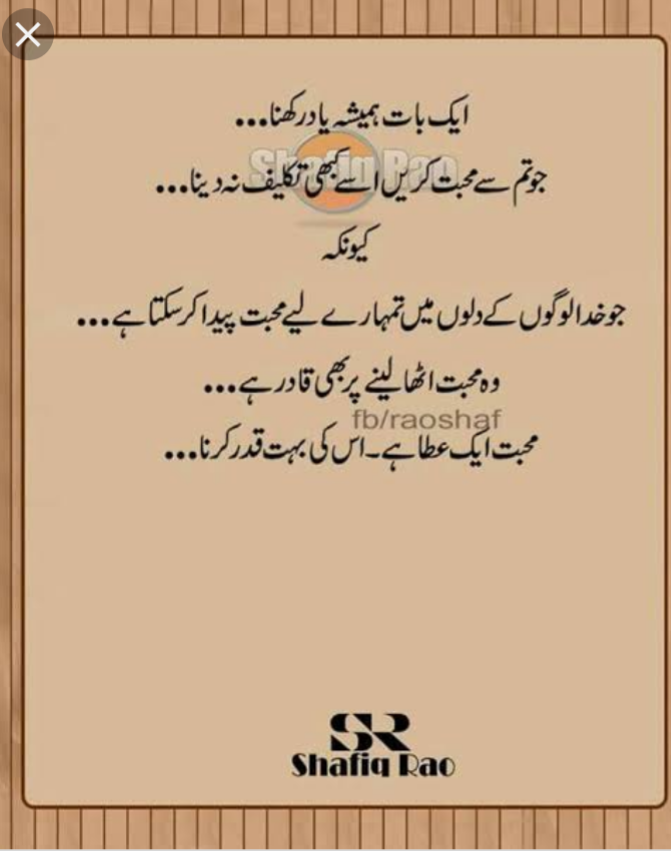 ایک بات ہمیشہ یاد رکھنا...
Shafiq Rao
جو تم سے محبت کریں اسے کبھی تکلیف نہ دینا...
کیونکہ
جو خدا لوگوں کے دلوں میں تمہارے لیے محبت پیدا کر سکتا ہے...
وہ محبت اٹھا لینے پر بھی قادر ہے...
fb/raoshaf
محبت ایک عطا ہے۔ اس کی بہت قدر کرنا...
SR
Shafiq Rao